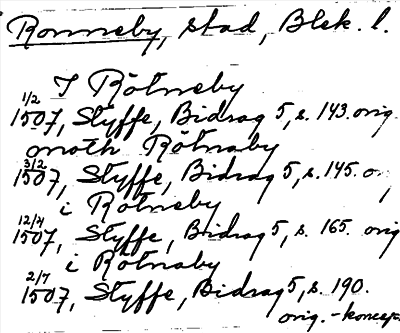 Ronneby, stad, Blek. l.
I Rötneby
1/2 1507, Styffe, Bidrag 5, s. 143. orig.
moth Rötnaby
3/2 1507, Styffe, Bidrag 5, s. 145. o
i Rötneby
12/4 1507, Styffe, Bidrag 5, s. 165. orig
i Rötnaby
2/7 1507, Styffe, Bidrag 5, s. 190.
orig. - koncep